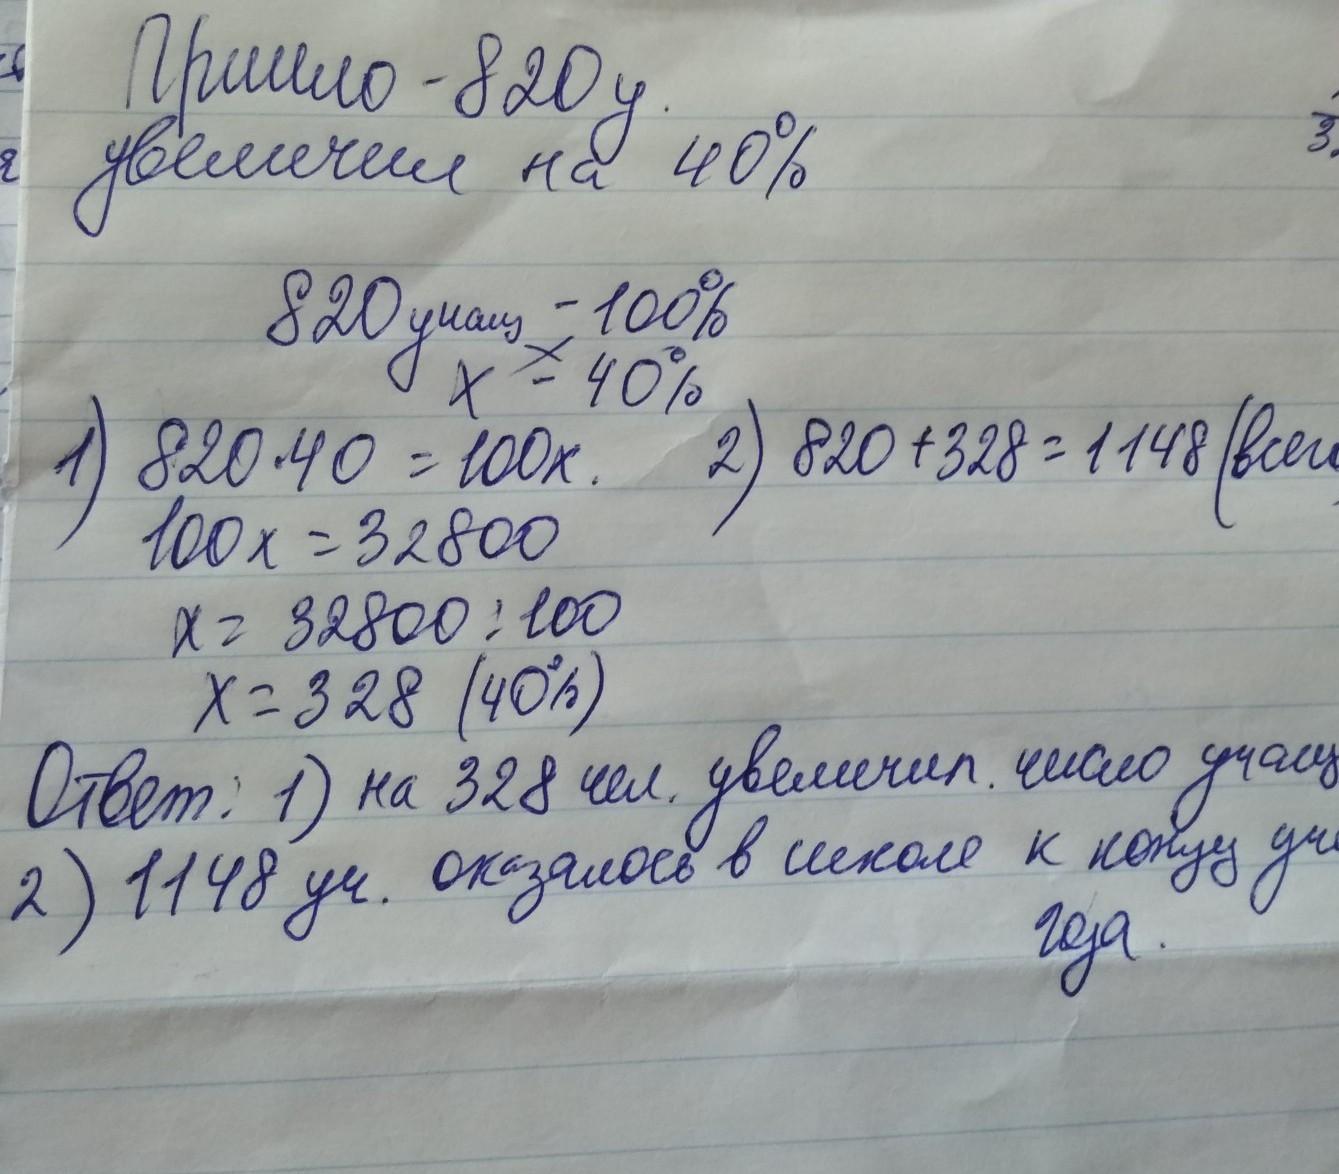 Пришло - 820 у.
увеличил на 40%
820 учащ - 100%
х - 40%
1) 820·40 = 100х.
2) 820 + 328 = 1148 (всего
100х = 32800
х = 32800 : 100
х = 328 (40%)
Ответ: 1) на 328 чел. увеличил. число учащ
2) 1148 уч. оказалось в школе к концу уч
года.